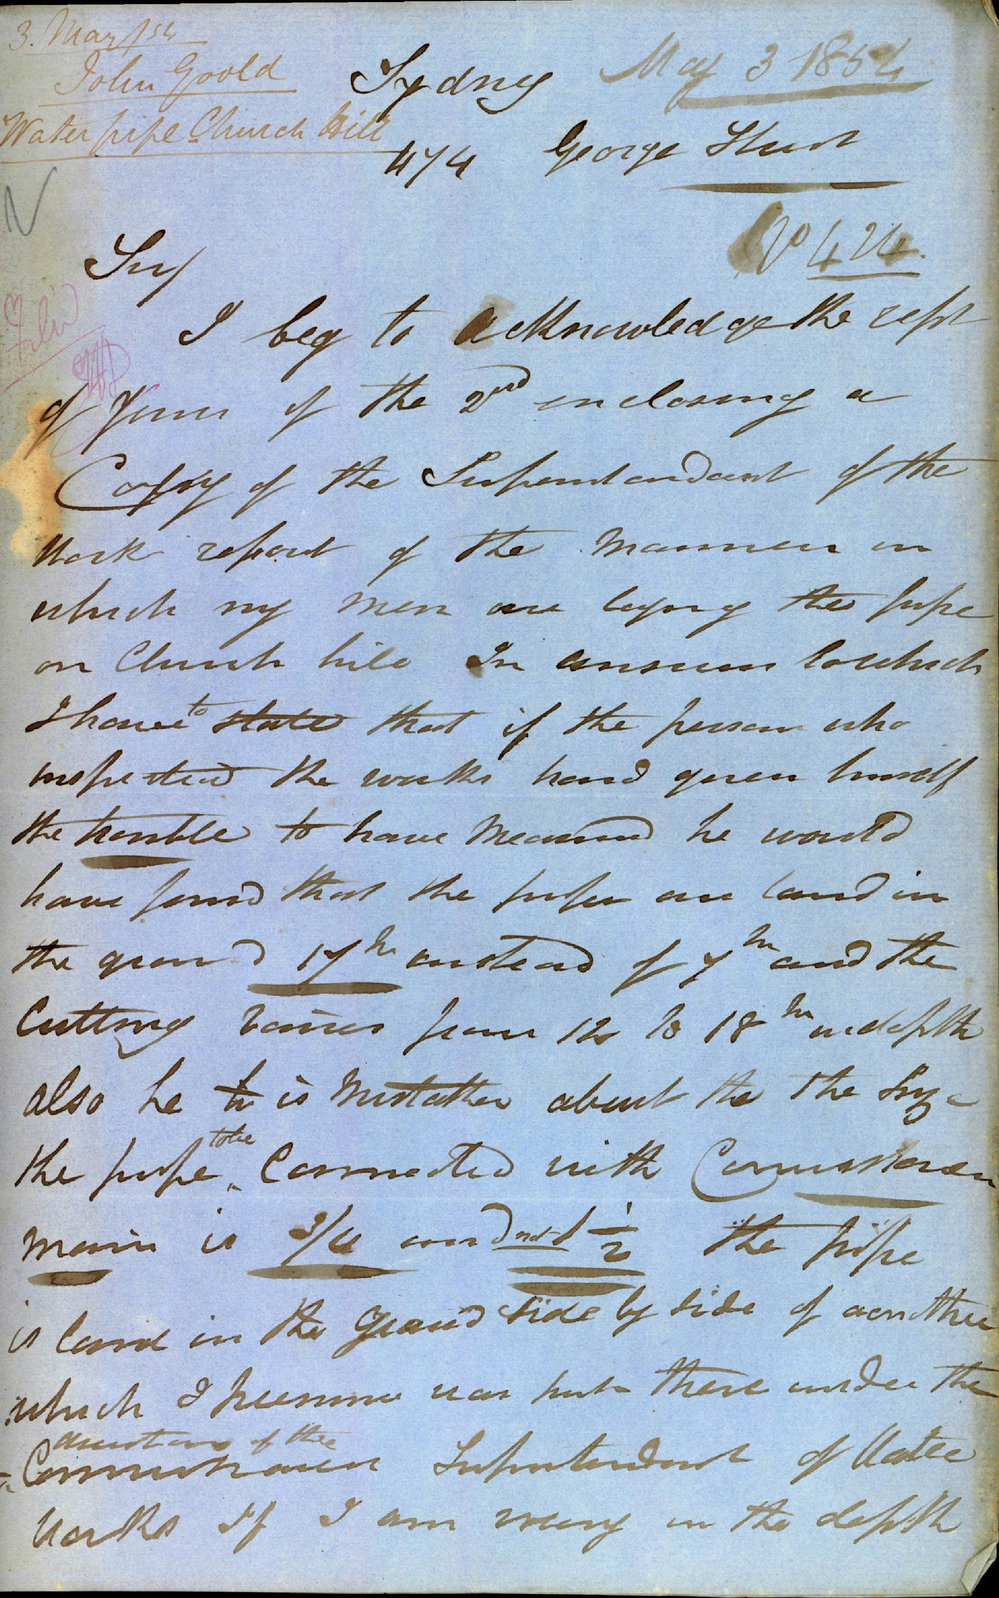 3. May /54
John Goold
Water pipe Church Hill
Sydney May 3 1854
474 George Street
No 424.
Sir/
I beg to acknowledge the rept
of yours of the 2nd enclosing a
Copy of the Superintendant of the
Work report of the manner in
which my men are laying the pipe
on Church hill In answer to which
I have to state that if the person who
inspected the works had given himself
the trouble to have Measured he would
have found that the pipes are laid in
the ground 17 in instead of 7 in and the
Cutting varies from 12 to 18 in in depth
also he is Mistaken about the the Size
the pipe to be Connected with Commissioners
main is 3/4 and not 1/2 the pipe
is laid in the Ground side by side of another
which I presume was put there under the
direction of the
Commissioners Superintendent of Water
Works If I am wrong in the depth